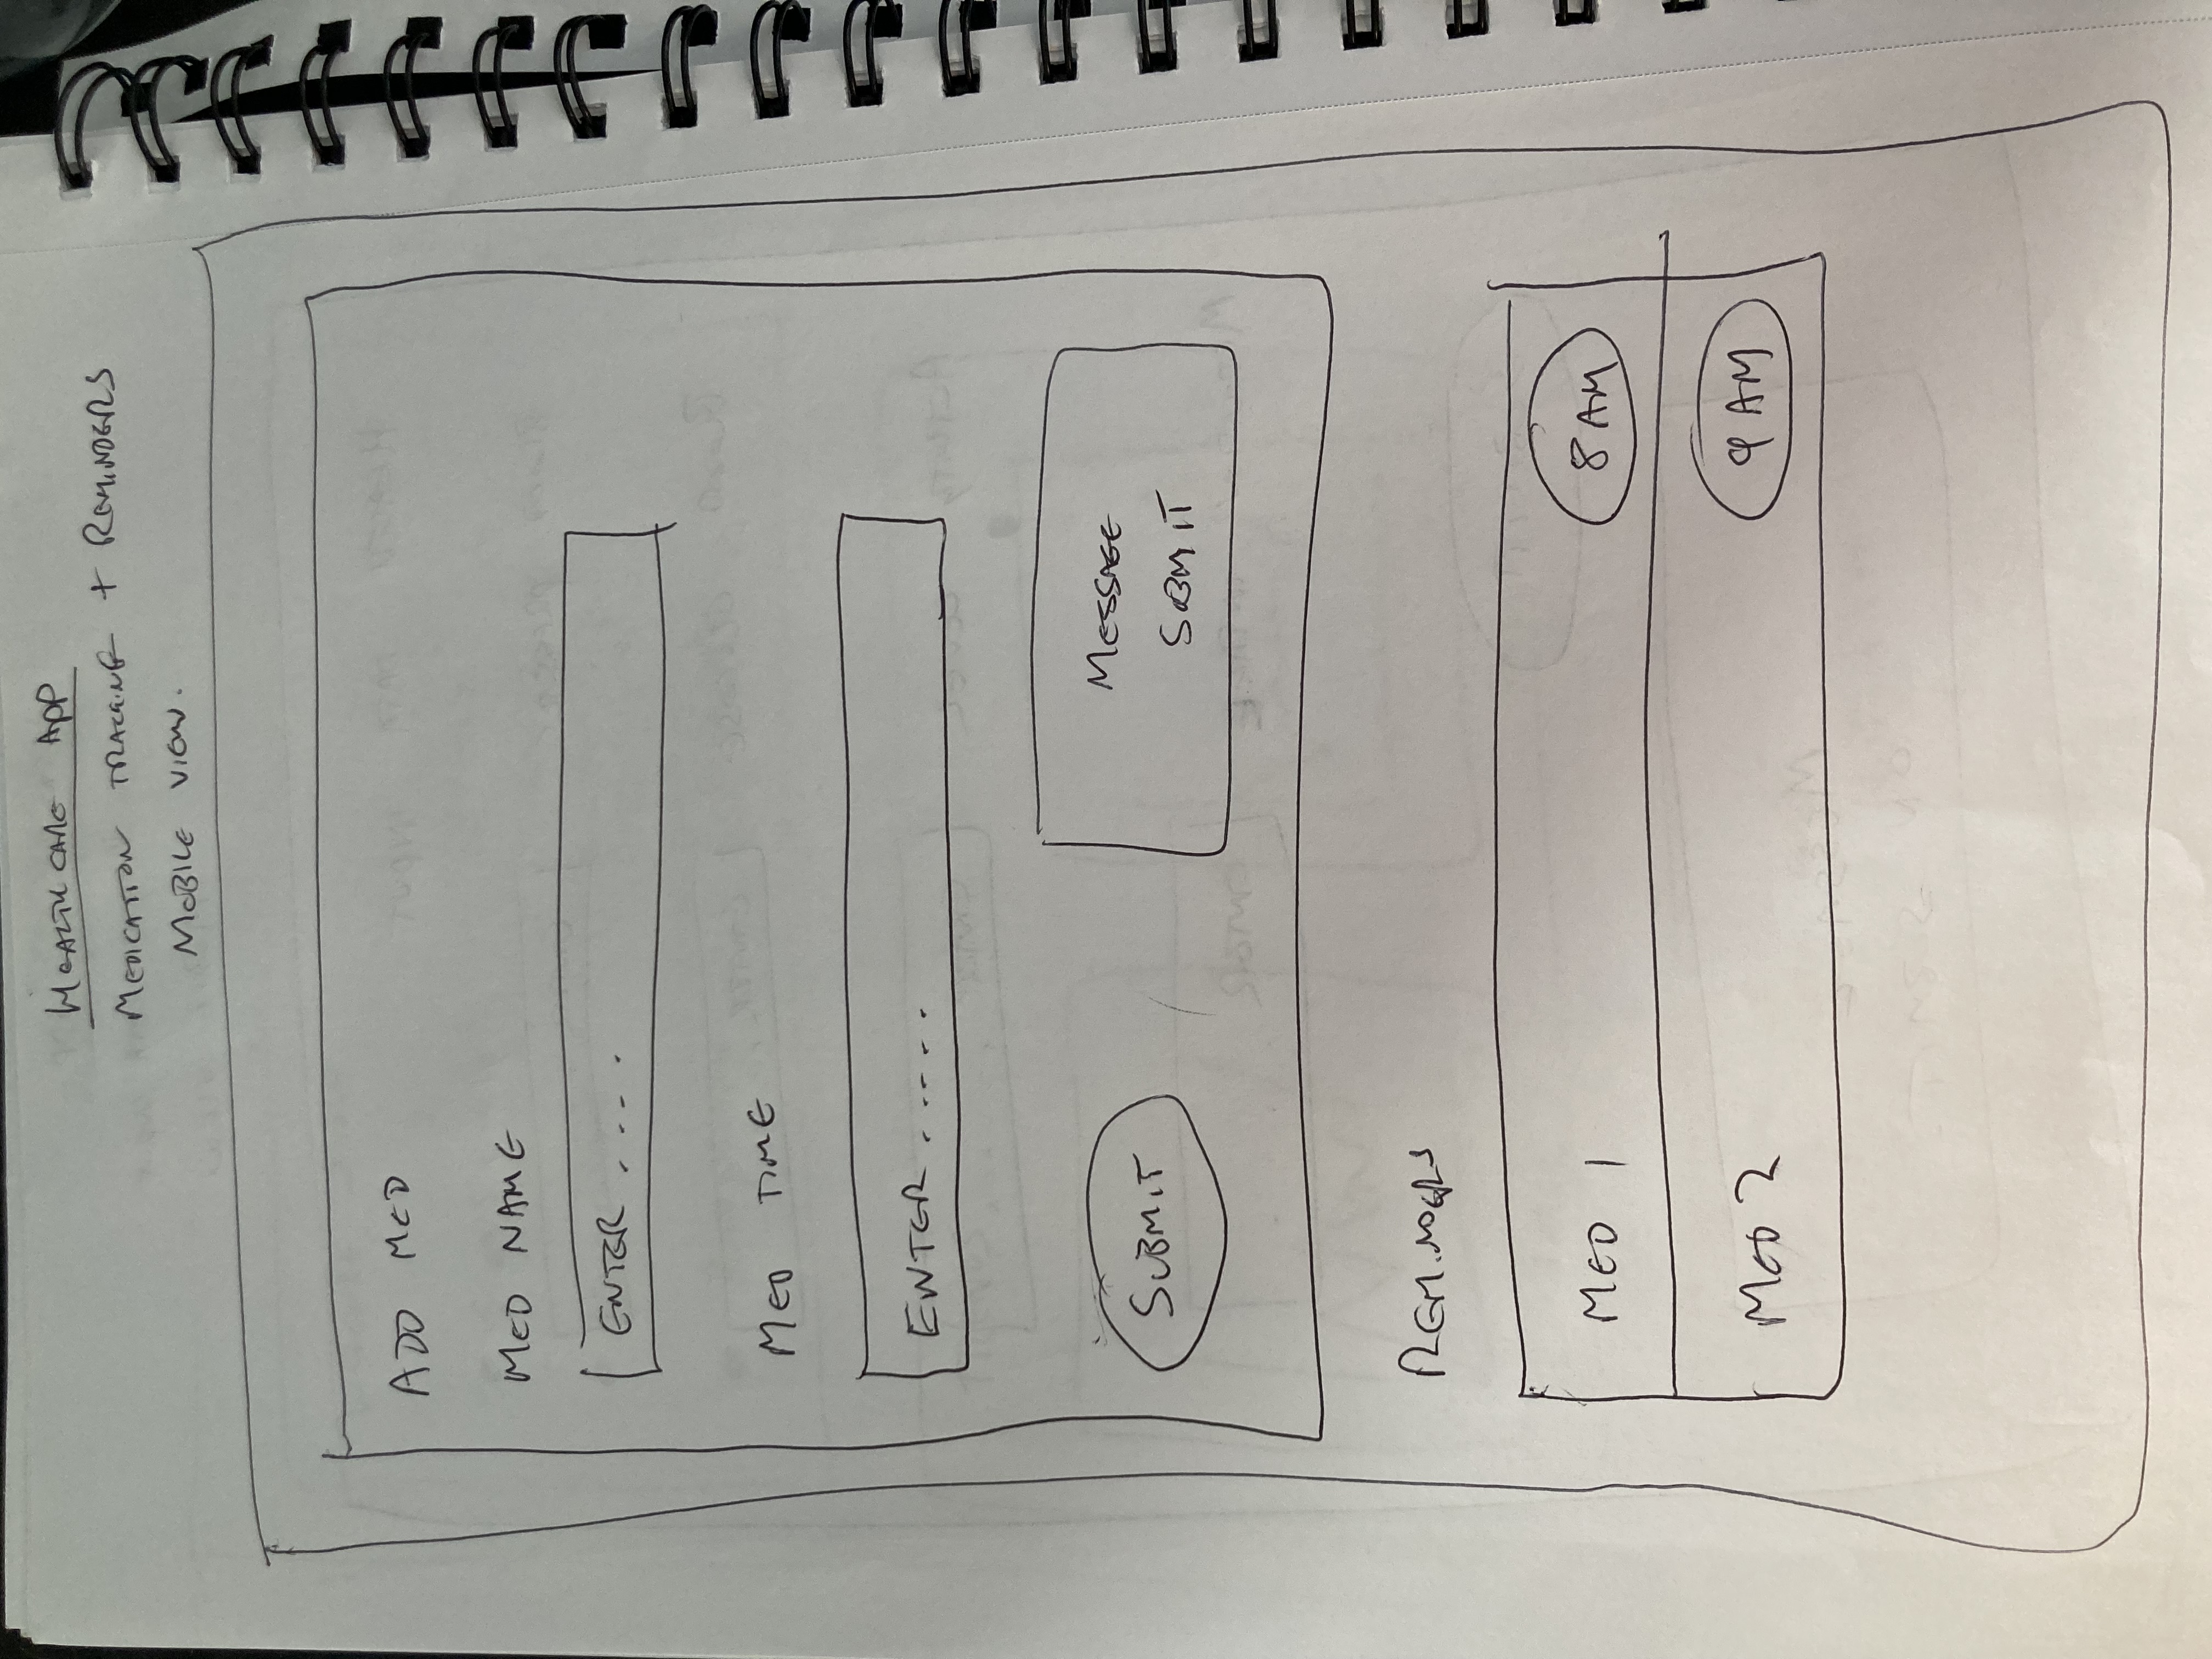 HEALTHCARE APP
MEDICATION TRACKING + REMINDERS
MOBILE VIEW.
ADD MED
MED NAME
ENTER ....
MED TIME
ENTER .....
SUBMIT
MESSAGE
SUBMIT
REMINDERS
MED 1
8 AM
MED 2
9 AM